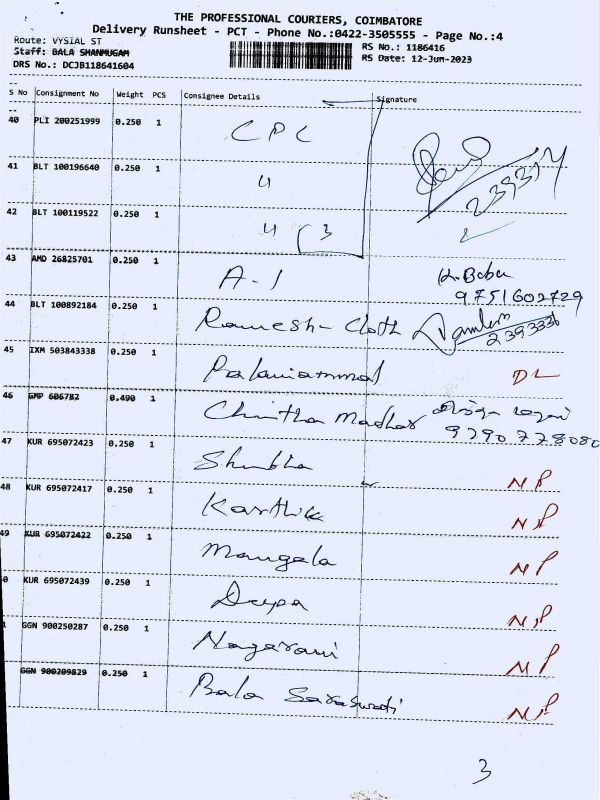 THE PROFESSIONAL COURIERS, COIMBATORE
Delivery Runsheet - PCT - Phone No.:0422-3505555 - Page No.:4
Route: VYSIAL ST
RS No.: 1186416
Staff: BALA SHANMUGAM
RS Date: 12-Jun-2023
DRS No.: DCJB118641604
S No Consignment No Weight PCS Consignee Details Signature
40 PLI 200251999 0.250 1 CPC
41 BLT 100196640 0.250 1 " 239317
42 BLT 100119522 0.250 1 " 3
43 AMD 26825701 0.250 1 A-1 K. Babu
9751602729
44 BLT 100892184 0.250 1 Ramesh-Cloth
2393336
45 IXM 503843338 0.250 1 Palaniammal DL
46 GMP 606782 0.490 1 Chintha Madhav
9790778080
47 KUR 695072423 0.250 1 Shubha NP
48 KUR 695072417 0.250 1 Karthik NP
49 KUR 695072422 0.250 1 Mangala NP
0 KUR 695072439 0.250 1 Deepa NP
1 GGN 900250287 0.250 1 Nagarani NP
GGN 900209829 0.250 1 Bala Saraswati NP
3